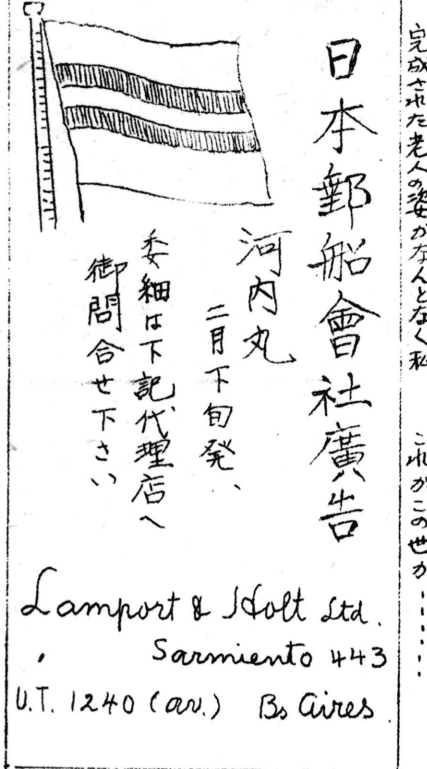 完成された老人の姿がなんとなく私
これがこの世か……
日本郵船會社廣告
河内丸
二月下旬発、
委細は下記代理店へ
御問合せ下さい
Lamport & Holt Ltd.
Sarmiento 443
U.T. 1240 (av.) Bs Aires